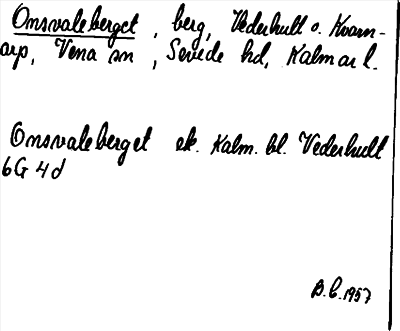 Onsvaleberget, berg, Vederhult o. Kvarn-
arp, Vena sn, Sevede hd, Kalmar l.
Onsvaleberget ek. Kalm. bl. Vederhult
6G 4d
B.C. 1957